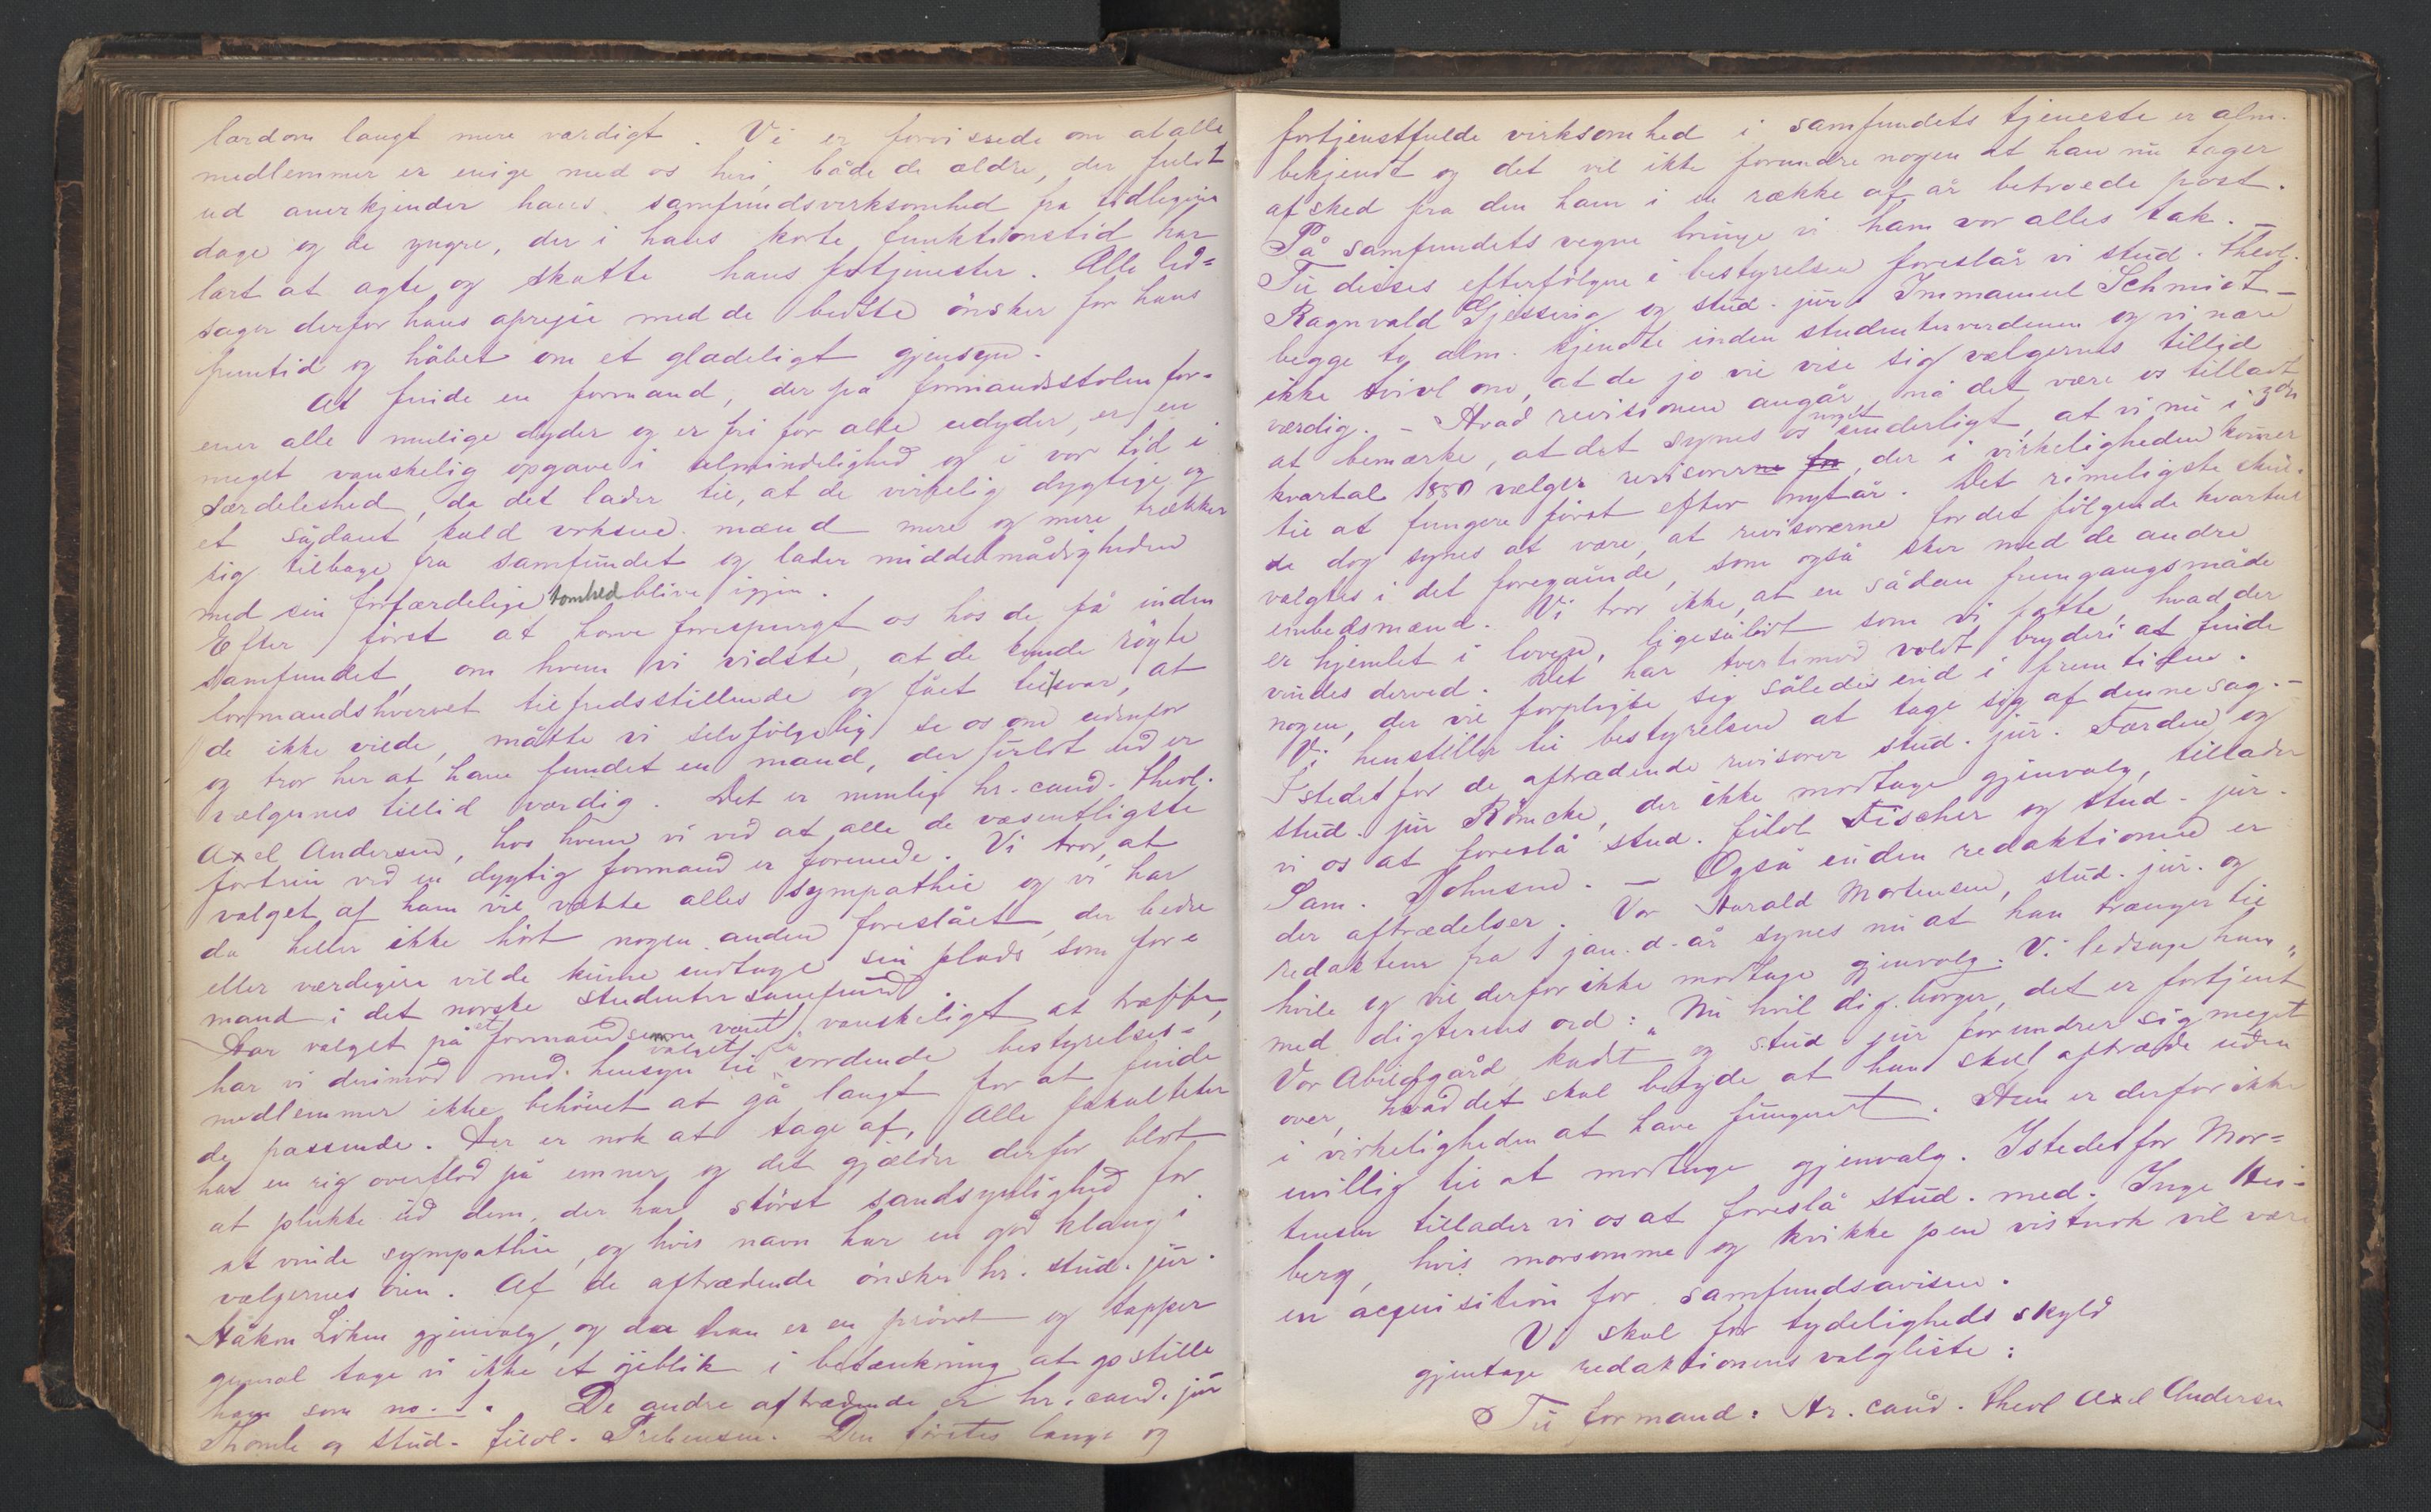 lærdom langt mere værdigt. Vi er forvissede om at alle
medlemmer er enige med os heri, både de ældre, der fuldt
ud anerkjender hans samfundsvirksomhed fra tidligere
dage og de yngre, der i hans korte funktionstid har
lært at agte og skatte hans fortjenester. Alle led=
sager derfor hans afreise med de bedste önsker for hans
fremtid og håbet om et glædeligt gjensyn.
At finde en formand, der på formandsstolen for-
ener alle mulige dyder og er fri for alle udyder, er en
meget vanskelig opgave i almindelighed og i vor tid i
særdeleshed, da det lader til, at de virkelig dygtige og
et sådant kald voksne mænd mere og mere trækker
sig tilbage fra samfundet og lader middelmådigheden
med sin forfærdelige tomhed blive igjen.
Efter först at have forespurgt os hos de få inden
samfundet, om hvem vi vidste, at de kunde rögte
formandshvervet tilfredsstillende og fået til svar, at
de ikke vilde, måtte vi selvfölgelig se os om udenfor
og tror her at have fundet en mand, der fuldt ud er
vælgernes tillid værdig. Det er nemlig hr. cand. theol.
Axel Andersen, hos hvem vi ved at alle de væsentligste
fortrin ved en dygtig formand er forenede. Vi tror, at
valget af ham vil vække alles sympathie og vi har
da heller ikke hört nogen anden foreslået, der bedre
eller værdigere vilde kunne indtage sin plads som for=
mand i det norske studentersamfund.
Har valget på et formandsemne været vanskeligt at træffe,
har vi derimod med hensyn til valget på vordende bestyrelses=
medlemmer ikke behövet at gå langt for at finde
de passende. Der er nok at tage af, alle fakulteter
har en rig overflod på emner og det gjælder derfor blot
at plukke ud dem, der har störst sandsynlighed for
at vinde sympathie, og hvis navn har en god klang i
vælgernes ören. Af de aftrædende önsker hr. stud. jur.
Håkon Löken gjenvalg, og da han er en prövet og tapper
general tage vi ikke et öieblik i betænkning at opstille
ham som no. 1. De andre aftrædende er hr. cand. jur
Thomle og stud. filol. Prebensen. Den förstes lange og
fortjenstfulde virksomhed i samfundets tjeneste er alm.
bekjendt og det vil ikke forundre nogen at han nu tager
afsked fra den ham i en række af år betroede post.
På samfundets vegne bringe vi ham vor alles tak. –
Til disses efterfölgere i bestyrelsen foreslår vi stud. theol.
Ragnvald Gjessing og stud. jur. Immanuel Schmidt –
begge to alm. kjendte inden studenterverdenen og vi nære
ikke tvivl om, at de jo vil vise sig vælgernes tillid
værdig. – Hvad revisionen angår, må det være os tilladt
at bemærke, at det synes os noget underligt, at vi nu i 3die
kvartal 1880 vælger revisorerne for, der i virkeligheden kommer
til at fungere först efter nytår. Det rimeligste skul-
de dog synes at være, at revisorerne for det fölgende kvartal
valgtes i det foregående, som også sker med de andre
embedsmænd. Vi tror ikke, at en sådan fremgangsmåde
er hjemlet i loven, ligesålidt som vi fatte, hvad der
vindes derved. Det har tvertimod voldt bryderi at finde
nogen, der vil forpligte sig således ind i fremtiden.
Vi henstiller til bestyrelsen at tage sig af denne sag. –
Istedetfor de aftrædende revisorer stud. jur. Færden og
stud. jur Römcke, der ikke modtage gjenvalg, tillader
vi os at foreslå stud. filol Fischer og stud. jur.
Sam. Johnsen. – Også inden redaktionen er
der aftrædelser. Vor Harald Mortensen, stud. jur. og
redakteur fra 1 jan. d. år synes nu at han trænger til
hvile og vil derfor ikke modtage gjenvalg. Vi ledsage ham
med digterens ord: "Nu hvil dig borger, det er fortjent".
Vor Abildgård, kadt og stud. jur forundrer sig meget
over, hvad det skal betyde at han skal aftræde uden
i virkeligheden at have fungeret. Han er derfor ikke
uvillig til at modtage gjenvalg. Istedetfor Mor=
tensen tillader vi os at foreslå stud. med. Inge Hei-
berg, hvis morsomme og kvikke pen vistnok vil være
en acquisition for samfundsavisen.
Vi skal for tydeligheds skyld
gjentage redaktionens valgliste:
Til formand: Hr. cand. theol Axel Andersen